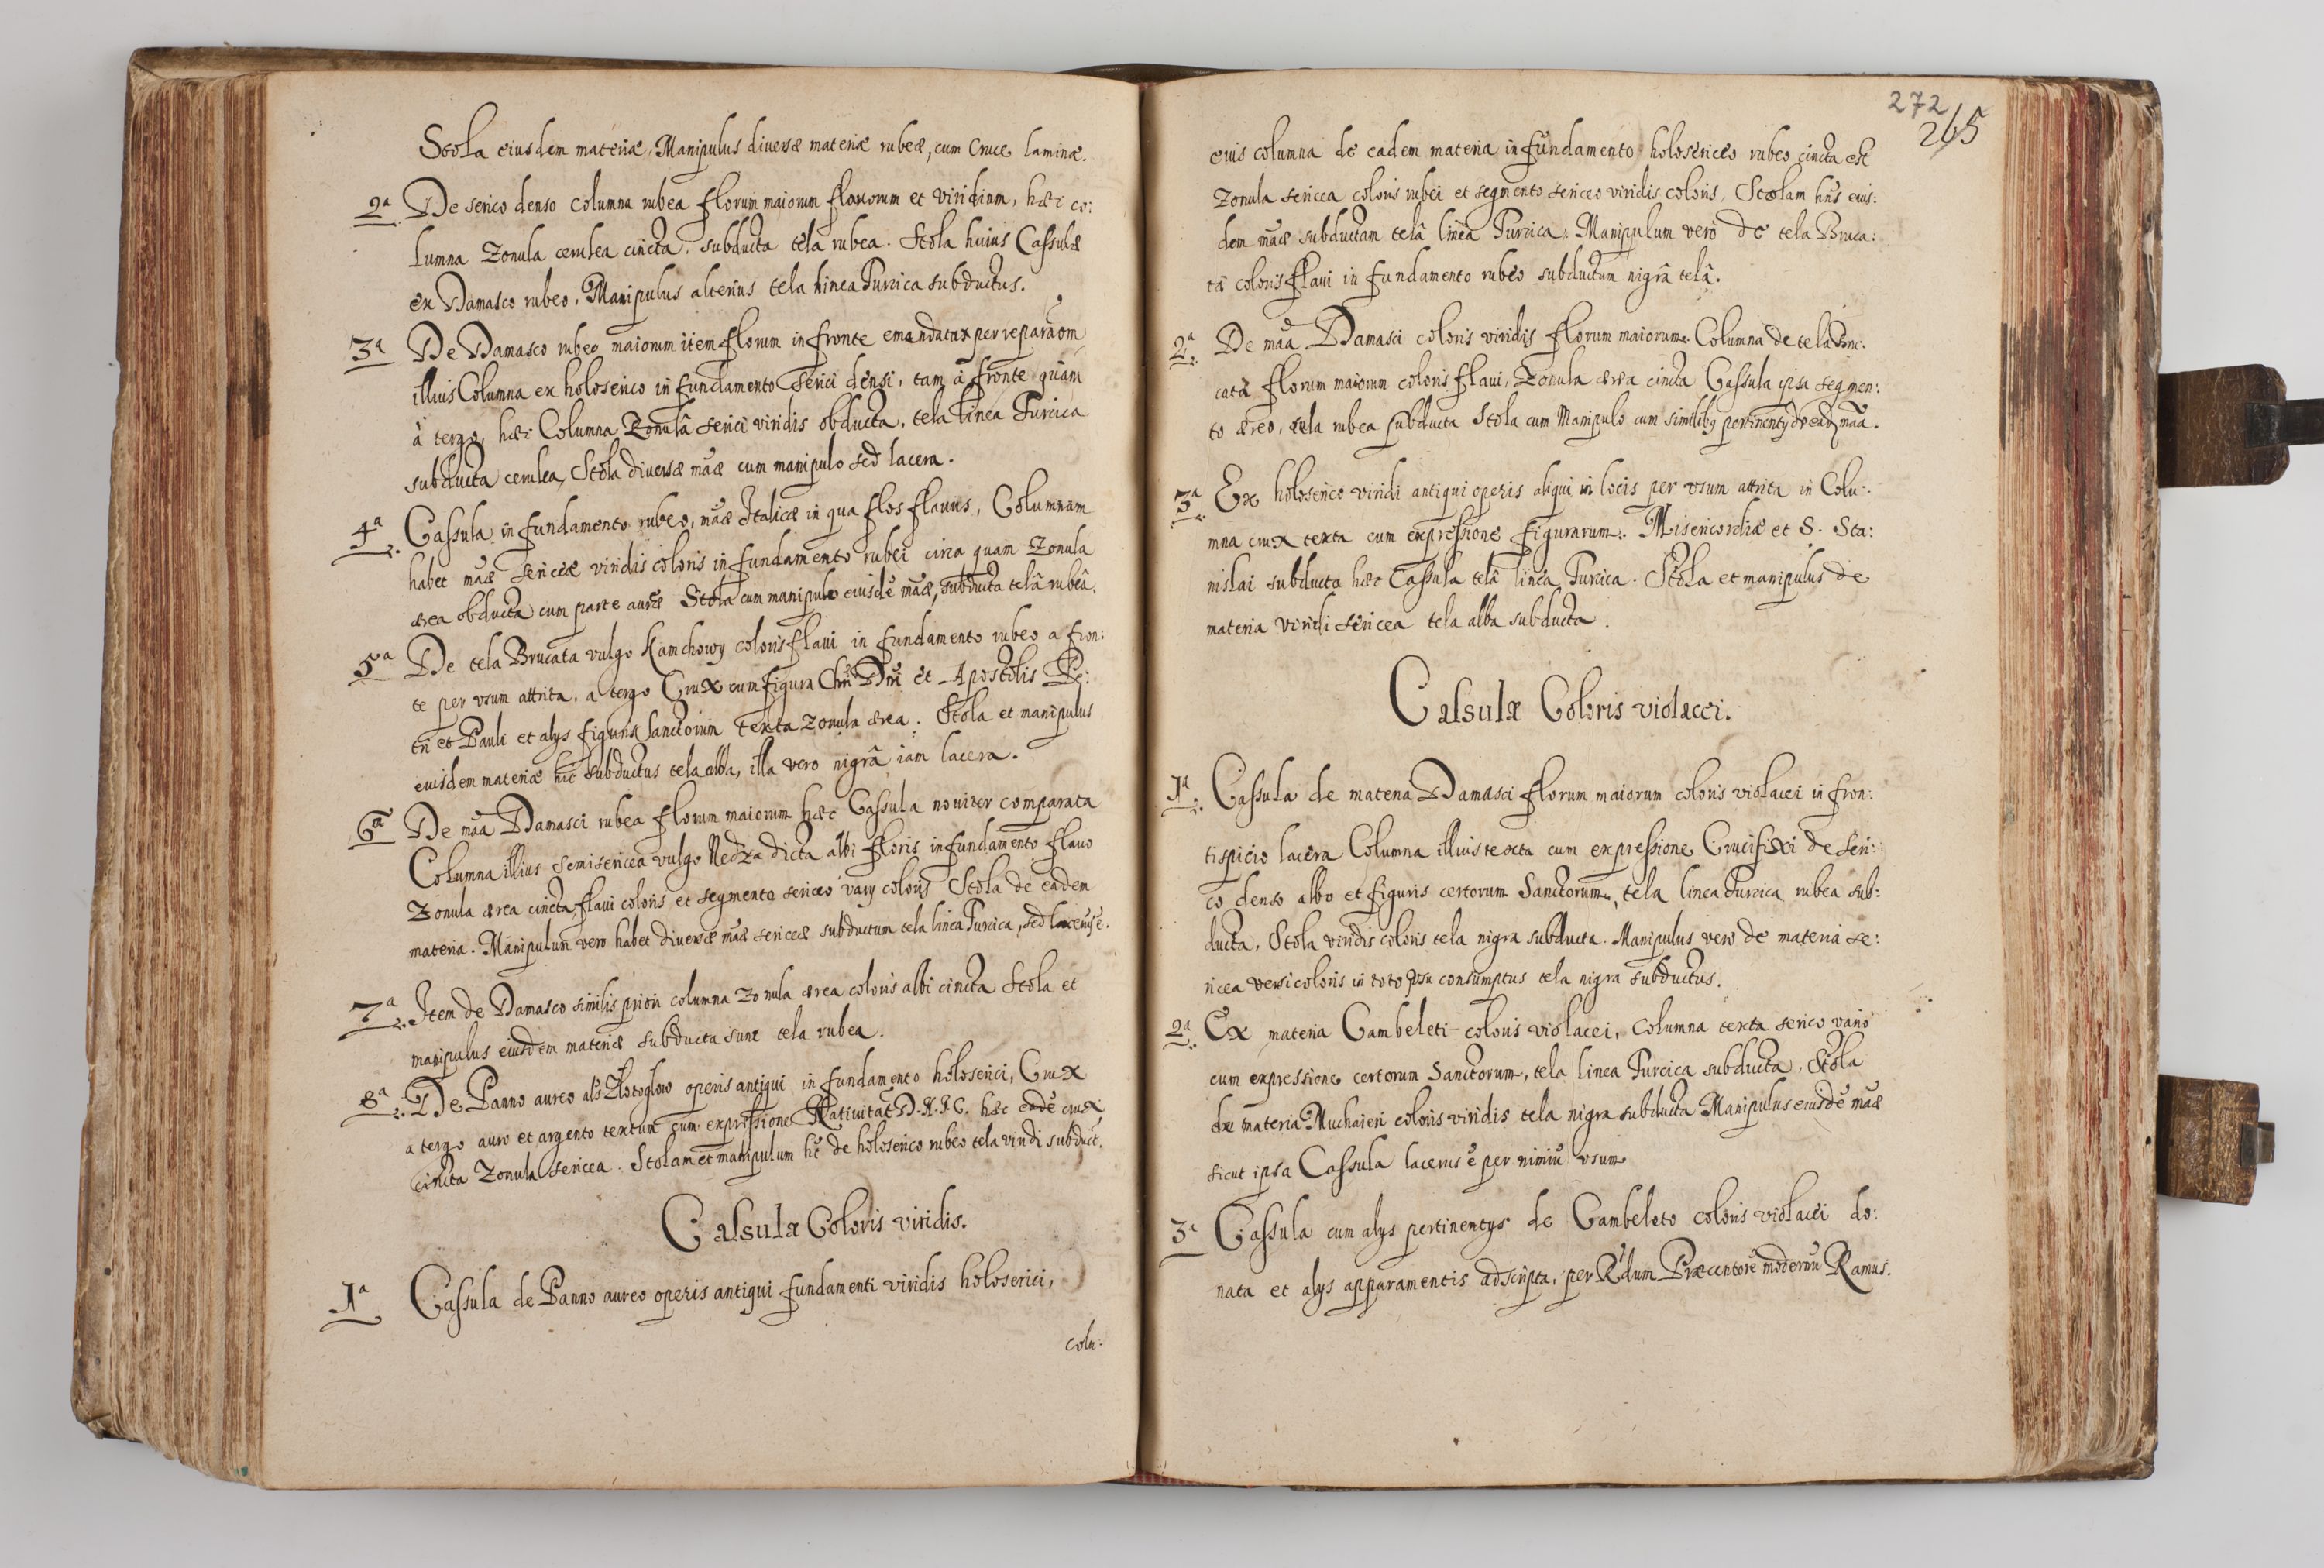 Stola eiusdem materiæ, Manipulus diuersæ materiæ rubeæ, cum Cruce laminæ.
2ª De serico denso columna rubea florum maiorum flauorum et viridium, hæc co:
lumna Zonula cerulea cincta, subducta tela rubea. Stola huius Cassulæ
ex Damasco rubeo, Manipulus alterius tela linea Turcica subductus.
3ª De Damasco rubeo maiorum item florum in fronte emendatur per reparaom
illius Columna ex holoserico in fundamento Serici densi, tam à fronte quàm
à tergo, hæc Columna Zonulâ serici viridis obducta, tela linea Turcica
subducta cerulea, Stola diuersæ mãæ cum manipulo sed lacera.
4ª Cassula in fundamento rubeo, mãæ Italicæ in qua flos flauus, Columnam
habet mãæ sericeæ viridis coloris in fundamento rubei circa quam Zonula
ærea obducta cum parte aureæ Stola cum manipulo eiusdẽ mãæ, subducta telâ rubeâ.
5ª De tela Brucata vulgo Kamchowy coloris flaui in fundamento rubeo a fron:
te per vsum attrita, a tergo Crux cum figura Chri Dni et Apostolis Pe:
tri et Pauli et alys figuris Sanctorum texta Zonula ærea. Stola et manipulus
eiusdem materiæ hic subductus tela alba, illa vero nigrâ iam lacera.
6ª De mãa Damasci rubea florum maiorum hæc Cassula nouiter comparata
Columna illius semisericea vulgo Nedza dicta albi floris in fundamento flauo
Zonula ærea cincta flaui coloris et segmento sericeo vary coloris Stola de eadem
materia. Manipulum vero habet diuersæ mãæ sericeæ subductum tela linea Turcica, sed lacerus ẽ.
7ª Item de Damasco similis priori columna Zonula ærea coloris albi cincta Stola et
manipulus eiusdem materiæ subducta sunt tela rubea.
8ª De Panno aureo als Złotogłow operis antiqui in fundamento holoserici, Crux
a tergo auro et argento textum cum expressione Natiuitat D. N. I. C. hæc eadẽ crux
cincta Zonula sericea. Stolam et manipulum hẽ de holoserico rubeo tela viridi subduct.
Calsulæ Coloris viridis.
1ª Cassula de Panno aureo operis antiqui fundamenti viridis holoserici,
colu:
272
265
eius columna de eadem materia in fundamento holosericeo rubeo cincta est
Zonula sericea coloris rubei et segmento sericeo viridis coloris, Stolam hñs eius:
dem mãæ subductam telâ lineâ Turcica, Manipulum verò de tela Bruca:
tâ coloris flaui in fundamento rubeo subductum nigrâ telâ.
2ª De mãa Damasci coloris viridis florum maiorum. Columna de tela Bru:
cata florum maiorum coloris flaui, Zonula ærea cincta Cassula ipsa segmen:
to æreo, tela rubea subducta Stola cum Manipulo cum similibꝫ pertinentys de eadẽ mãa.
3ª Ex holoserico viridi antiqui operis aliqui in locis per vsum attrita in Colu:
mna crux texta cum expressione figurarum. Misericordiæ et S. Sta:
nislai subducta hæc Cassula telâ lineâ Turcica. Stola et manipulus de
materia viridi sericea tela alba subducta.
Calsulæ Coloris violacei.
1ª Cassula de materia Damasci florum maiorum coloris violacei in fron:
tispicio lacera Columna illius texta cum expressione Crucifixi de seri:
co denso albo et figuris certorum Sanctorum, tela linea Turcica rubea sub:
ducta, Stola viridis coloris tela nigra subducta. Manipulus vero de materia se:
ricea versicoloris in toto vsu consumptus tela nigra subductus.
2ª Ex materia Cambeleti coloris violacei, columna texta serico vario
cum expressione certorum Sanctorum, tela linea Turcica subducta, Stola
de materia Muchaieri coloris viridis tela nigra subducta Manipulus eiusdẽ mãæ
sicut ipsa Cassula lacerus ẽ per nimiũ vsum
3ª Cassula cum alys pertinentys de Cambeleto coloris violacei do:
nata et alys apparamentis adscripta, per Rdum Præcentorẽ modernũ Ramus.